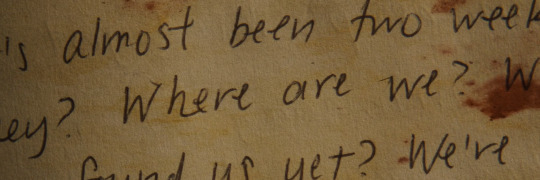 's almost been two week
ey? Where are we? W
found us yet? We're